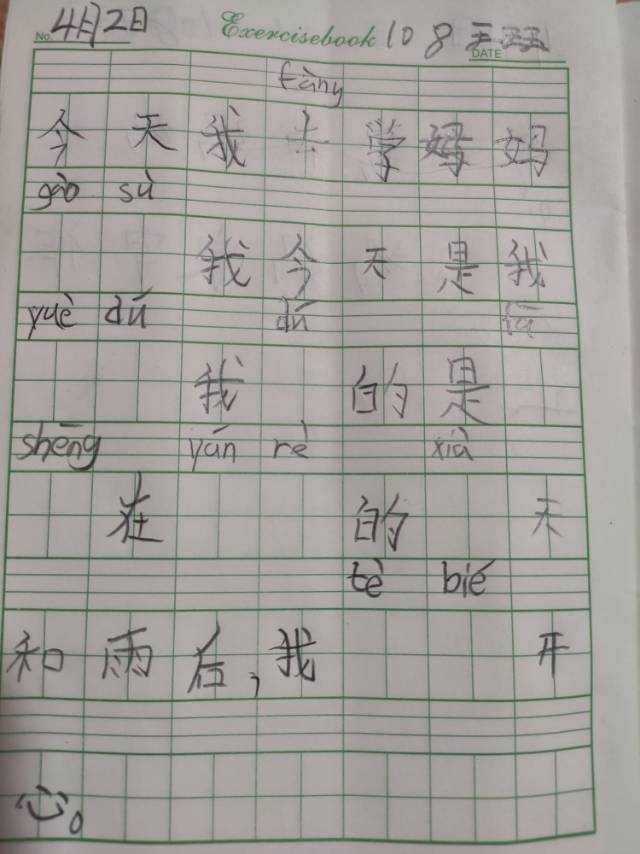 No. 4月2日 Exercisebook 10 8 DATE
fàng
今天我去学妈妈
gào sù
我今天是我
yuè dú dú
我的是
shēng yán rè xià
在的天
tè bié
和雨后,我开
心。